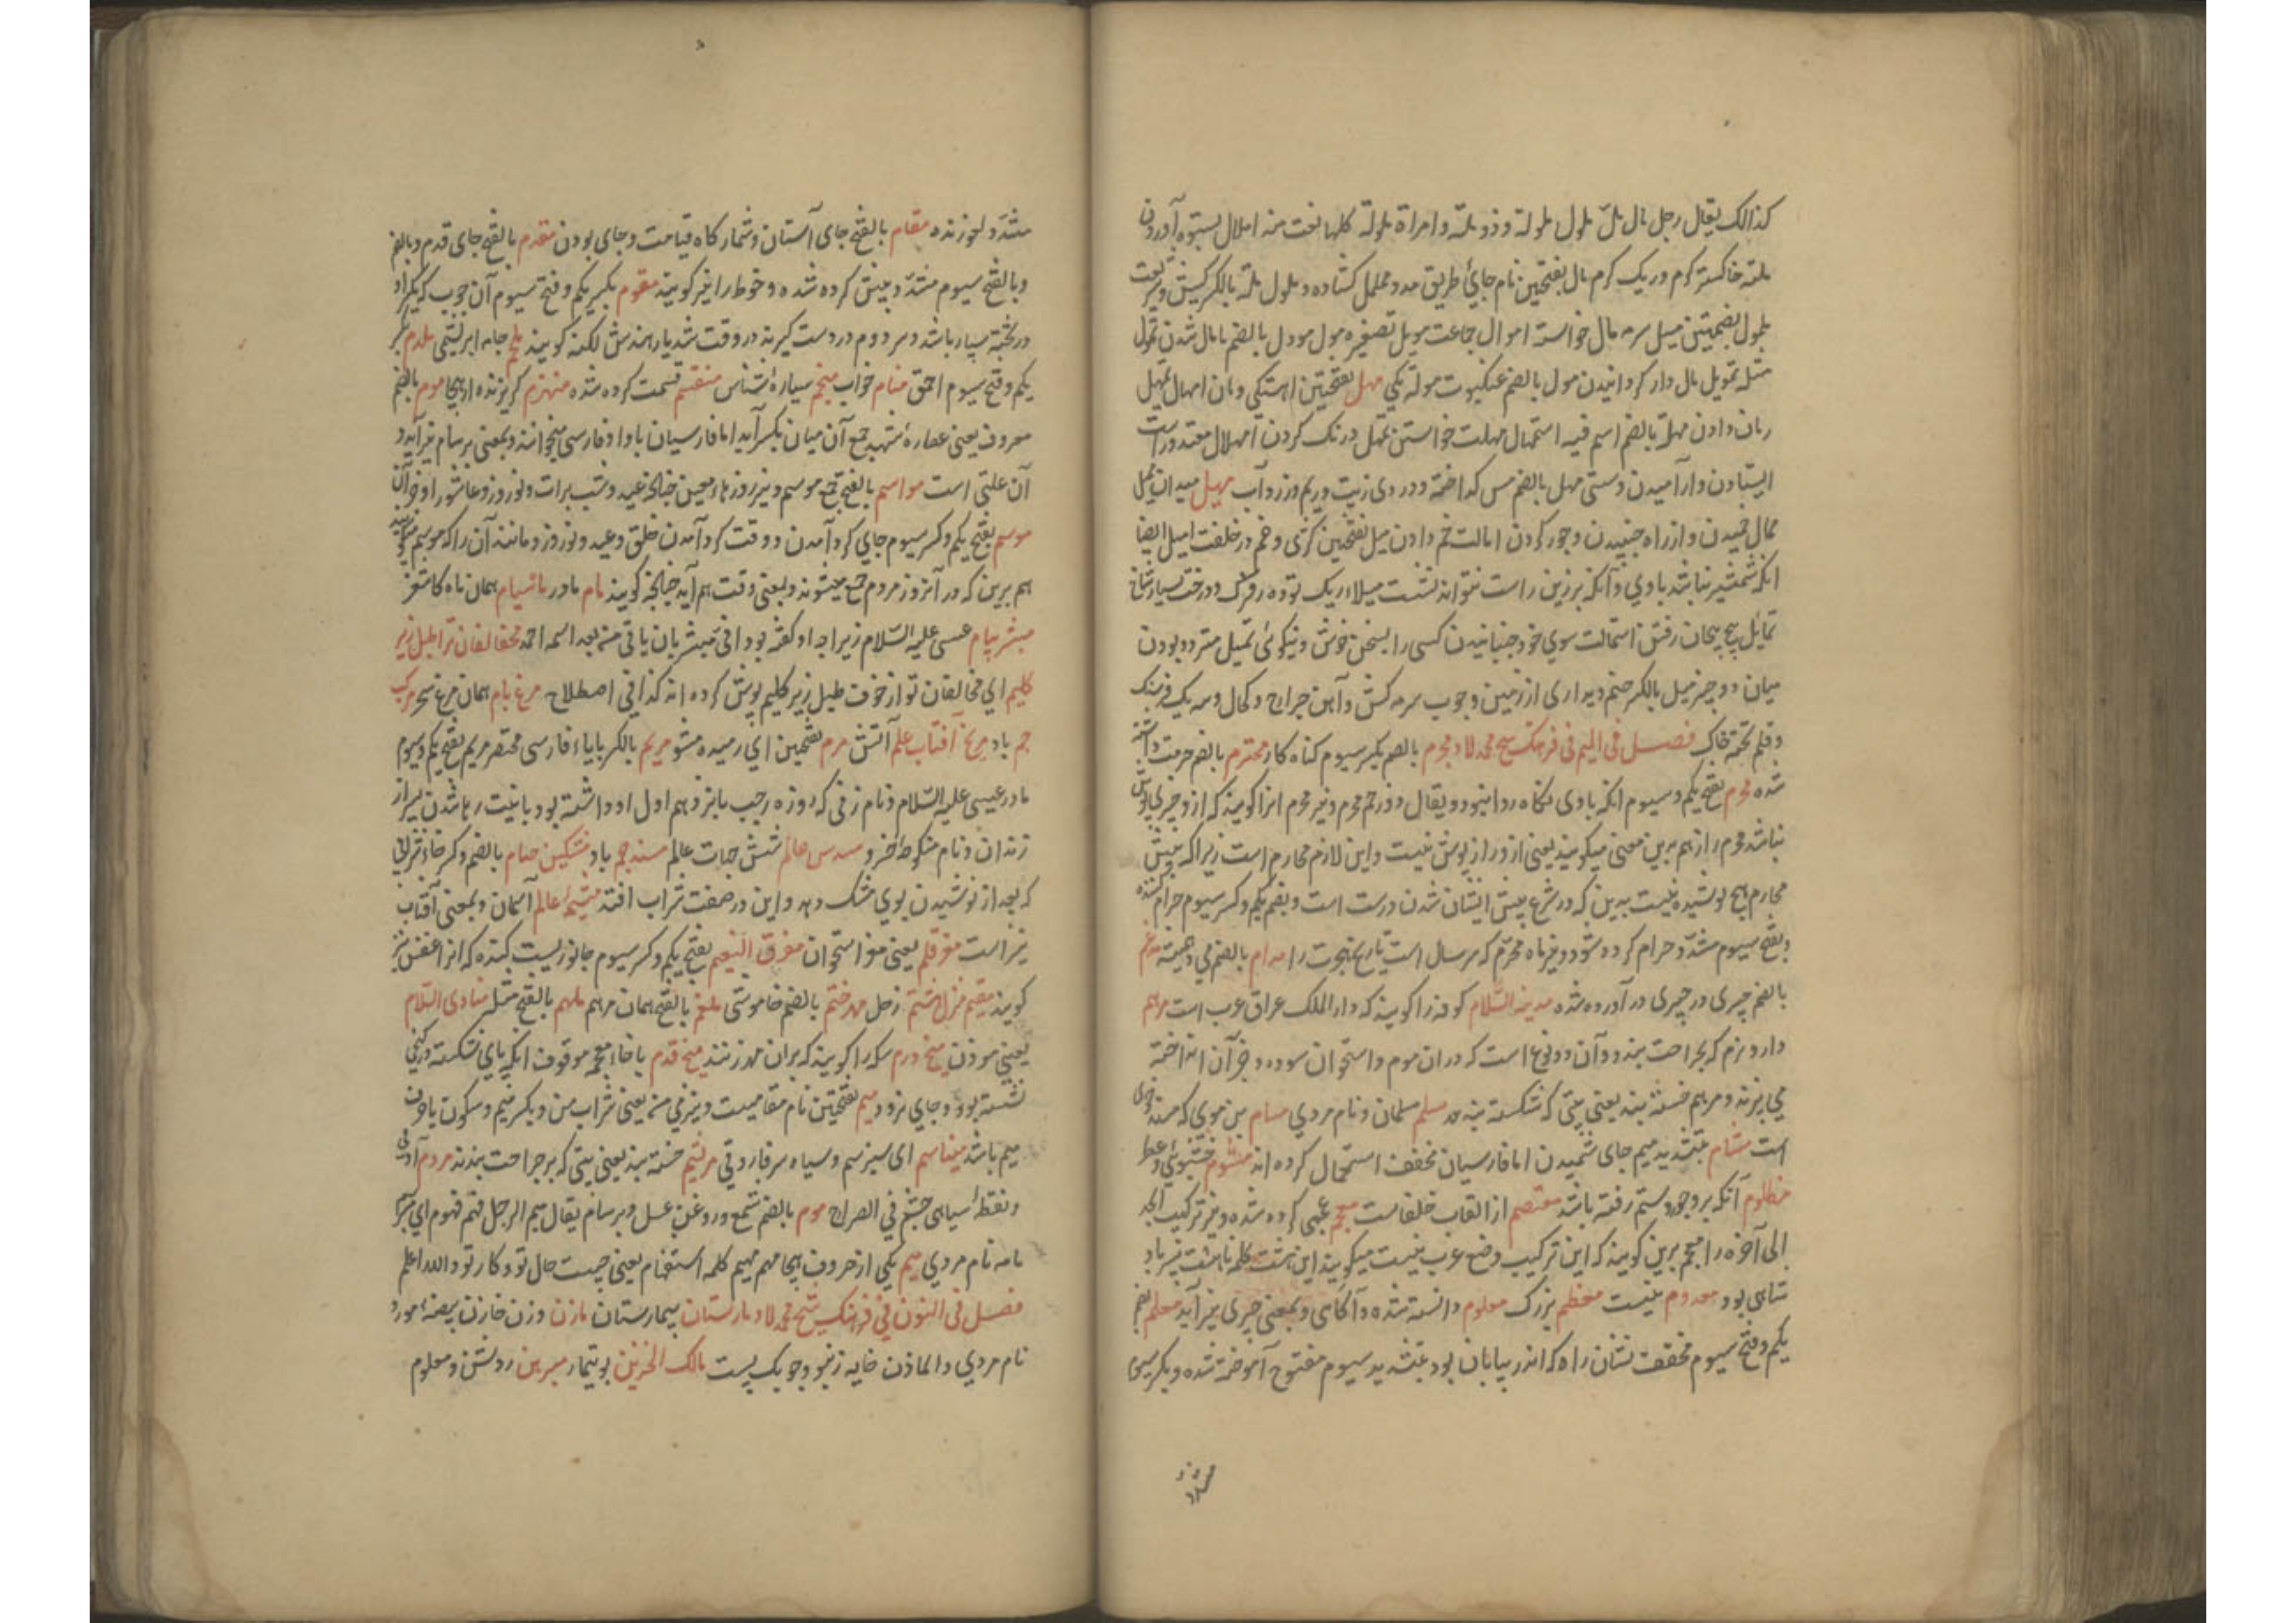 کذالک یقال رجل مال ملّ ملول ملولة و ذو ملّة و امراة ملولة کلها نعت منه املال بستوه آوردن
ملته خاکستر کرم و ریک کرم مال بفتحتین نام جائ طریق کشاده و ملول ملّة بالکسر کیش و شریعت
ملمول بضمتین میل سرمه مال خواسته اموال جماعت مویل تصغیره مول مودل بالضم با مال شدن تمول
مثله تمویل مال دار کردانیدن مول بالضم عنکبوت مولة یکی مهل بفتحتین اهستکی و مان امهال تمهیل
زمان دادن مهلة بالضم اسم فیه استمهال مهلت خواستن تمهل درنک کردن امهلال معتدو راست
ایستادن و آرامیدن و سستی مهل بالضم مس کداخته و دردی زیت و ریم و زرداب مهیل میدان میل
ممال خمیدن و از راه جنبیدن و جور کردن امالت خم دادن میل بفتحتین کژی و خم در خلقت امیل ایضا
انکه شمشیر نباشد با وی و آنکه بر زین راست نتواند نشست میلاء ریک توده بزرک و درخت بسیار شاخ
تمایل پیچ پیچان رفتن استمالت سوی خود جنبانیدن کسی را بسخن خوش و نیکوئ تمیل متردد بودن
میان دو چیز میل بالکسر چشم دیداری از زمین و چوب سرمه کش و آهن جراح و کحال و سه یک فرسنک
و قلم تخته خاک فصل فی المیم فی فرهنک شیخ محمد لاد مجرم بالضم بکسر سیوم کناه کار محترم بالضم حرمت داشته
شده محرم بفتح یکم و سیوم انکه با وی نکاه روا نبود و یقال ذو رحم محرم و نیز محرم انرا کویند که از و چیزی پوشش
نباشد محرم راز هم برین معنی میکویند یعنی از و راز پوش نیست و این لازم محارم است زیرا که پیش
محارم هیچ پوشیده نیست بدین که در شرع پیش ایشان شدن درست است و بضم یکم و کسر سیوم حرام کننده
و بفتح سیوم مشدد حرام کرده شود و نیز ماه محرّم که سر سال است تاریخ هجرت را مدام بالضم می و همیشه مدغم
بالضم چیزی در چیزی در آورده شده مدینه السّلام کوفه را کویند که دار الملک عراق عرب است مرهم
دارو نرم که بجراحت بندند و آن دو نوع است که دران موم و استخوان سوده و جز آن انداخته
می پزند و مرهم خسته بند یعنی پتی که شکسته بندد مسلم مسلمان و نام مردی مسام بن موی که مسند خوی
است مشام بتشدید میم جای شمیدن اما فارسیان مخفف استعمال کرده اند مشموم خشبوئی و عطر
مظلوم آنکه برو جور و ستم رفته باشد معتصم از القاب خلفاست معجم عجمی کرده شده و نیز ترکیب ابجد
الی آخره را معجم برین کویند که این ترکیب وضع عرب نیست میکویند این هشت کلمه نام هشت پسر باد
شاهی بود معدوم نیست معظم بزرک معلوم دانسته شده و آکاهی و بمعنی چیزی نیز آید معلم بضم
یکم و فتح سیوم مخفف نشان راه که اندر بیابان بود بتشدید سیوم مفتوح آموخته شده و بکسر سیوم
مشدد آموزنده مقام بالفتح جای آستان و شمار کاه قیامت و جای بودن مقدم بالفتح جای قدم و بالضم
و بالفتح سیوم مشدد پیش کرده شده و خوط را نیز کویند مقوم بکسر یکم و فتح سیوم آن چوب که یکسر او
در تخته سپار باشد و سر دوم در دست کیرند در وقت شدیار هندش لکنه کویند ملحم جامه ابریشمی ملدم بکسر
یکم و فتح سیوم احمق منام خواب منجم سیاره شناس منقسم قسمت کرده شده منهزم کریزنده از هیجا موم بالضم
معروف یعنی عصاره شهد جمع آن میان بکسر آید اما فارسیان با واو فارسی میخوانند و بمعنی برسام نیز آید و
آن علتی است مواسم بالفتح جمع موسم و نیز روز ماء معین چنانچه عید و شب برات و نوروز و عاشورا و جز آن
موسم بفتح یکم و کسر سیوم جای کرد آمدن و وقت کرد آمدن خلق و عید و نوروز و مانند آن را که موسم میکویند
هم برین که در آنروز مردم جمع میشوند و بمعنی وقت هم آید چنانچه کویند مام مادر ماشیام همان ماه کاشغر
مبشر پیام عیسی علیه السّلام زیراچه او کفته بود انی مبشر بان یاتی من بعد اسمه احمد مخالفان ترا طبل زیر
کلیم ای مخالفان تو از خوف طبل زیر کلیم پوش کرده اند کذا فی اصطلاح مرغ بام همان مرغ سحر مرکب
جم باد مرغ آفتاب علم آتش مرم بفتحتین ای رمیده مشو مریم بالکسر با یاء فارسی مختصر مریم بفتح یکم و سیوم
مادر عیسی علیه السّلام و نام زنی که روزه رجب پانزدهم اول او داشته بود بانیت رها شدن پسر از
زندان و نام منکوطه خسرو مسدس عالم شش جهات عالم مسند جم باد مشکین ختام بالضم و کسر خاء شرابی
که بعد از نوشیدن بوی مشک دهد و این در صفت شراب افتد عالم آسمان و بمعنی آفتاب
نیز است مغز قلم یعنی مغز استخوان بفتح یکم و کسر سیوم جانوریست کنده که انرا عفن نیز
کویند مقیم منزل هشتم زحل مهر ختم بالضم خاموشی ملغم بالفتح همان مرهم ملهم بالفتح مثل منادی السّلام
یعنی موذن میخ درم سکه را کویند که بران مهر زنند میخ قدم با خاء معجمه موقوف انکه پای شکسته در کنجی
نشسته بود و جای نرود میم بفتحتین نام مقامیست و نیز می منه یعنی شراب من و بکسر میم و سکون یا حرف
میم باشد میناسم ای سبز سم و سیاه سرفار و فی مرلیم خسته بند یعنی پتی که بر جراحت بندند مردم آدمی
و نقطه سیاهی چشم فی الصراح موم بالضم شمع و روغن عسل و برسام یقال میم الرجل فهو مموم ای مبرسم
مامه نام مردی میم یکی از حروف هجا مهم مهیم کلمه استفهام یعنی چیست حال تو و کار تو والله اعلم
فصل فی النون فی فرهنک شیخ محمد لاد مارستان بیمارستان مازن وزن خازن بیضه مور و
نام مردی و الماذن خایه زنبور و چوبک پست مالک الحزین بوتیمار مبرهن روشن و معلوم